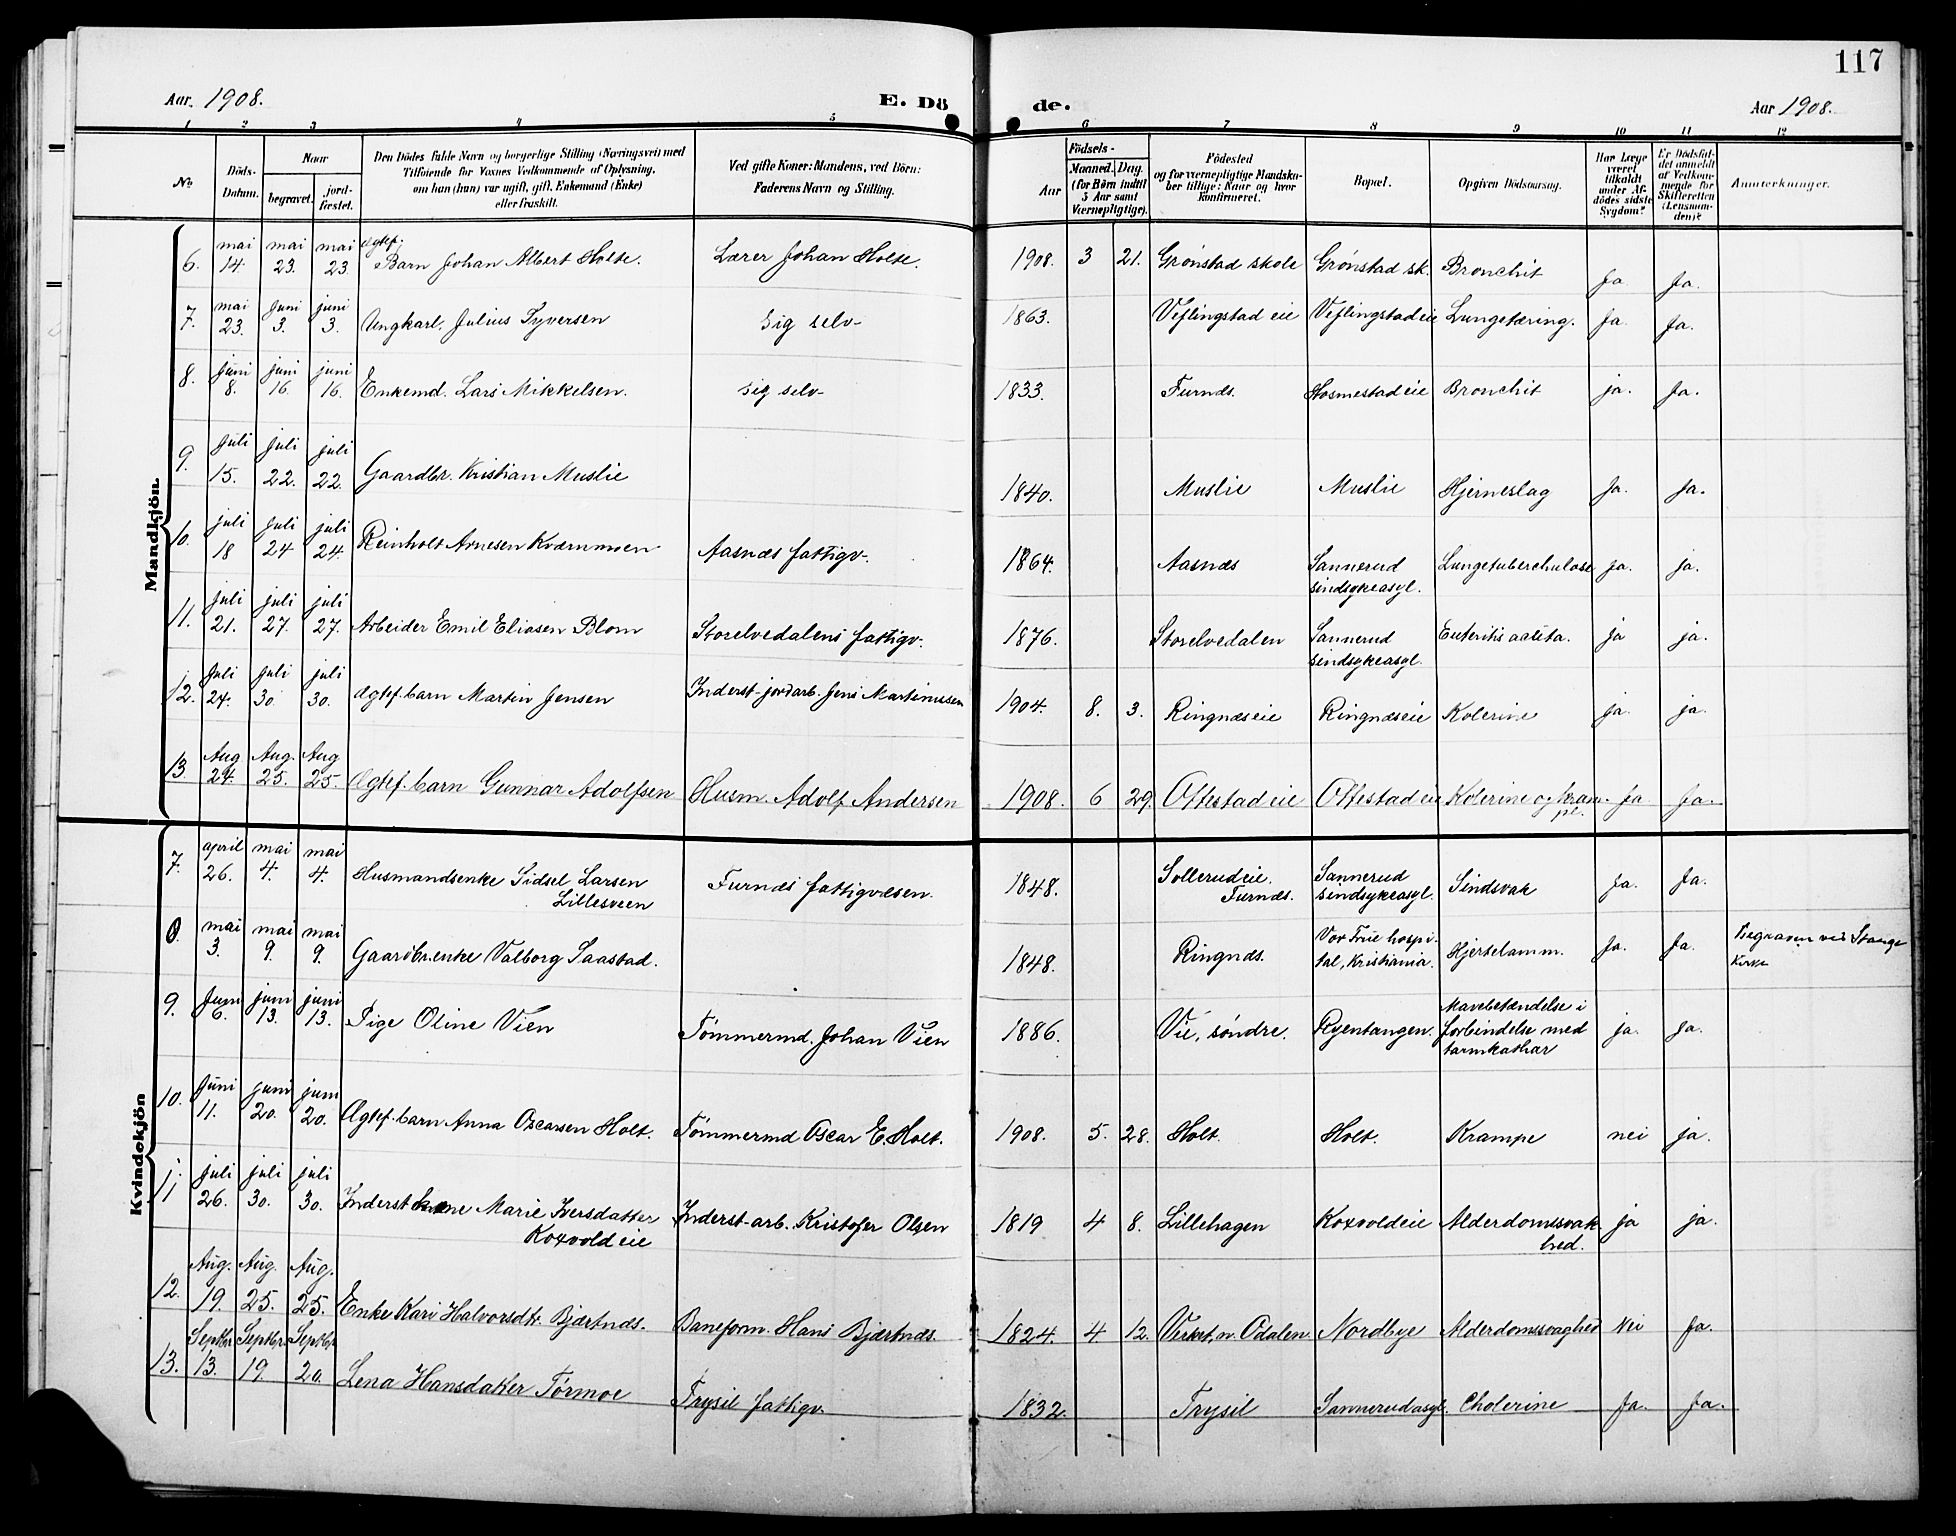 117
Aar. 1908. E. Dö de. Aar 1908.
1 2 3 4 5 6 7 8 9 10 11 12
No. Döds-Datum. Naar begravet. jord-fæstet. Den Dödes fulde Navn og borgerlige Stilling (Næringsvei) med Tilföiende for Voxnes Vedkommende af Oplysning, om han (hun) var ugift, gift, Enkemand (Enke) eller fraskilt. Ved gifte Koner: Mandens, ved Börn: Faderens Navn og Stilling. Födsels- Aar Maaned. Dag. (for Börn indtil 5 Aar samt Værnepligtige). Födested og for værnepligtige Mandska-ber tillige: Naar og hvor konfirmeret. Bopæl. Opgiven Dödsaarsag. Har Læge været tilkaldt under Af-dödes sidste Sygdom? Er Dödsfal-det anmeldt af Vedkom-mende for Skifteretten (Lensman-den)? Anmærkninger.
Mandkjön.
6. mai 14. mai 23. mai 23. Ægtef. Barn Johan Albert Holte. Lærer Johan Holte. 1908. 3 21. Grønstad skole Grønstad sk. Bronchit Ja. Ja.
7. mai 23. Juni 3. juni 3. Ungkarl. Julius Syversen sig selv- 1863. Veflingstad eie Veflingstad eie Lungetæring. Ja. Ja.
8. juni 8. juni 16. juni 16. Enkemd. Lars Mikkelsen. sig selv- 1833. Furnds. Hosmestad eie Bronchit ja. Ja.
9. Juli 15. juli 22. juli 22. Gaardbr. Kristian Muslie 1840. Muslie Muslie Hjerneslag Ja. Ja.
10. juli 18 juli 24 juli 24. Reinholt Arnesen Kværnmoen Aasnæs fattigv. 1864. Aasnæs Sannerud sindsykeasyl. Lungetuberchulose ja. ja.
11. juli 21. juli 27. juli 27. Arbeider Emil Eliasen Blom Storelvedalens fattigv. 1876. Storelvedalen Sannerud sindsykeasyl. Enteritis acuta. ja ja.
12. Juli 24. juli 30. juli 30. Ægtef. barn Martin Jensen Inderst-jordarb. Jens Martinussen 1904. 8. 3. Ringnæseie Ringnæseie Kolerine ja. ja.
13. Aug 24. Aug. 25. Aug 25. Ægtef. barn Gunnar Adolfsen Husm. Adolf Andersen 1908. 6 29. Ottestad eie Ottestad eie Kolerine og kram-pe. Ja Ja.
Kvindekjön
7. april 26. mai 4. mai 4. Husmandsenke Sidsel Larsen Lillesveen Furnæs fattigvæsen. 1848. Sollerudeie. Furnæs. Sannerud sindsykeasyl. Sindsvak Ja. Ja.
8. mai 3. mai 9. mai 9. Gaardbr.enke Valborg Saastad. 1848. Ringnds. Vor Frue hospi-tal, Kristiania. Hjertelamm. Ja. Ja. Begraven ved Stange Kirke
9. Juni 6. juni 13. juni 13. Pige Oline Vien Tømmermd. Johan Vien 1886. Vie, søndre. Ryentangen. Mavebetændelse i forbindelse med tarmkathar ja. Ja.
10. Juni 11. juni 20. juni 20. Ægtef. barn Anna Oscarsen Holt. Tømmermd Oscar E. Holt. 1908. 5. 28. Holt. Holt. Krampe nei ja.
11 juli 26. juli 30. juli 30. Inderst kone Marie Iversdatter Koxvold eie Inderst-arb. Kristofer Olsen 1819 4 8. Lillehagen Koxvoldeie Alderdomssvak-hed. ja ja.
12. Aug. 19. Aug. 25. Aug. 25. Enke Kari Halvorsdtr. Bjærtnds. Baneform. Hans Bjærtnds. 1824. 4 12. Verket, n. Odalen Nordbye Alderdomssvaghed Nei Ja.
13. Septbr 13. Septbr. 19. Septbr 20. Lena Hansdatter Tørmoe Trysil fattigv. 1832. Trysil Sannerudasyl. Cholerine Ja. Ja.